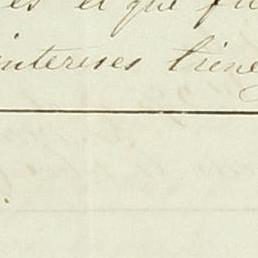 es el que fu
intereses tiene